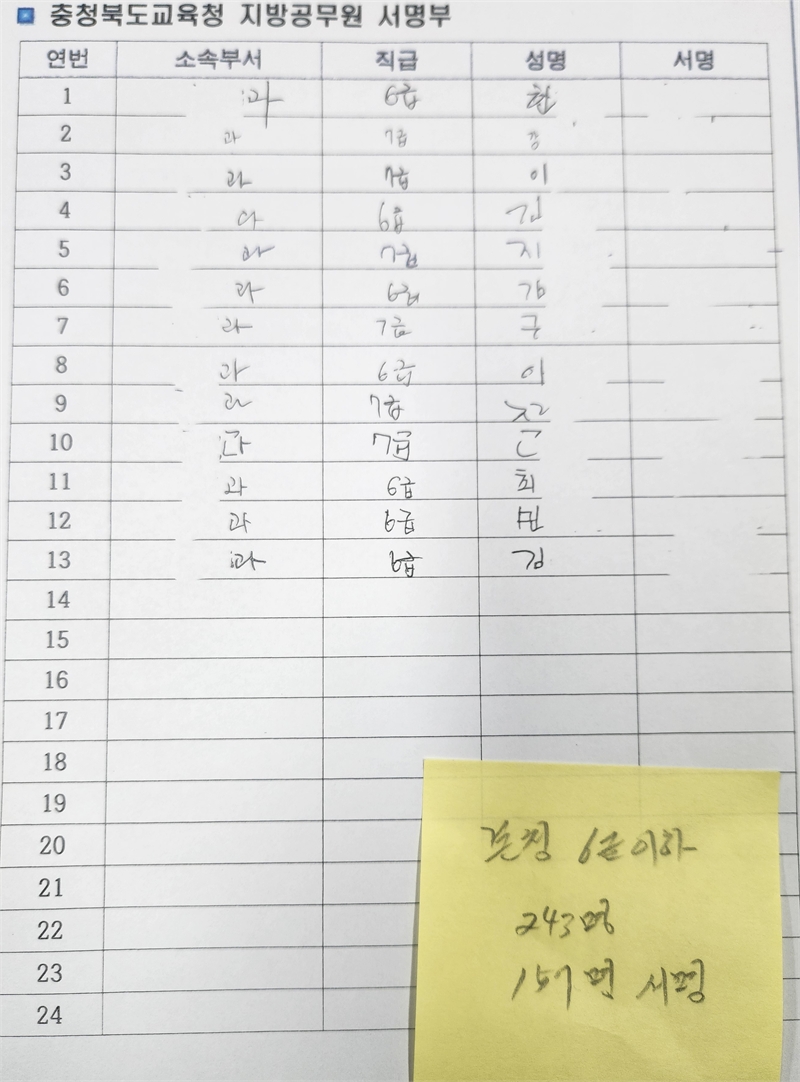 충청북도교육청 지방공무원 서명부
연번 소속부서 직급 성명 서명
1 과 6급 한
2 과 7급 강
3 과 7급 이
4 과 6급 김
5 과 7급 지
6 과 6급 김
7 과 7급
8 과 6급 이
9 과 7급
10 과 7급
11 과 6급 최
12 과 6급 민
13 과 6급 김
14
15
16
17
18
19
20
21
22
23
24
본청 6급이하
243명
157명 서명